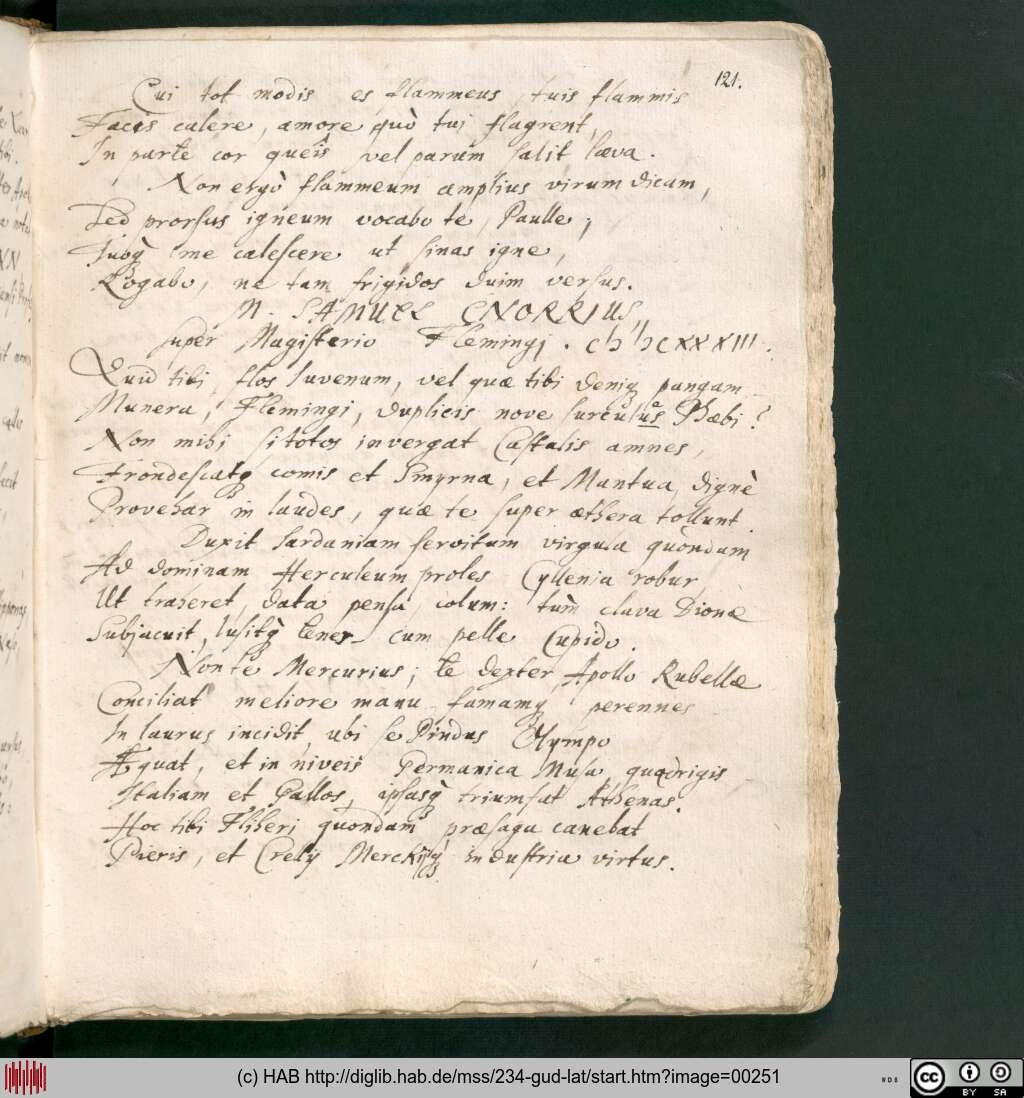 121.
Cui tot modis es flammeus, tuis flammis
Faces calere, amore quò tui flagrent,
In parte cor queis vel parùm salit læva.
Non ergò flammeum amplius virum dicam,
Sed prorsus igneum vocabo te, Paulle;
Tuoq me calescere ut sinas igne,
Rogabo, ne tam frigidos duim versus.
M. SAMUEL CNORRIUS
super Magisterio Flemingj.
Quid tibi, flos Iuvenum, vel quæ tibi deniq pangam
Munera, Flemingi, duplicis nove surculus Phæbi?
Non mihi si totos invergat Castalis amnes,
Frondescatq comis et Smyrna, et Mantua, dignè
Provehar in laudes, quæ te super æthera tollunt.
Duxit Sardaniam servitum virgula quòndam
Ad dominam Herculeum proles Cyllenia robur
Ut traheret, data pensa, colum: tùm clava Dionæ
Subjacuit, lusitq tener cum pelle Cupido.
Non te Mercurius; te dexter Apollo Rubellæ
Conciliat meliore manu, famamq perennes
In laurus incidit, ubi se Pindus Olympo
Æquat, et in niveis Germanica Musa quadrigis
Italiam et Gallos, ipsasq triumfat Athenas.
Hoc tibi Fliheri quondam præsaga canebat
Pieris, et Crelij industria virtus.
(c) HAB http://diglib.hab.de/mss/234-gud-lat/start.htm?image=00251
cc
BY SA